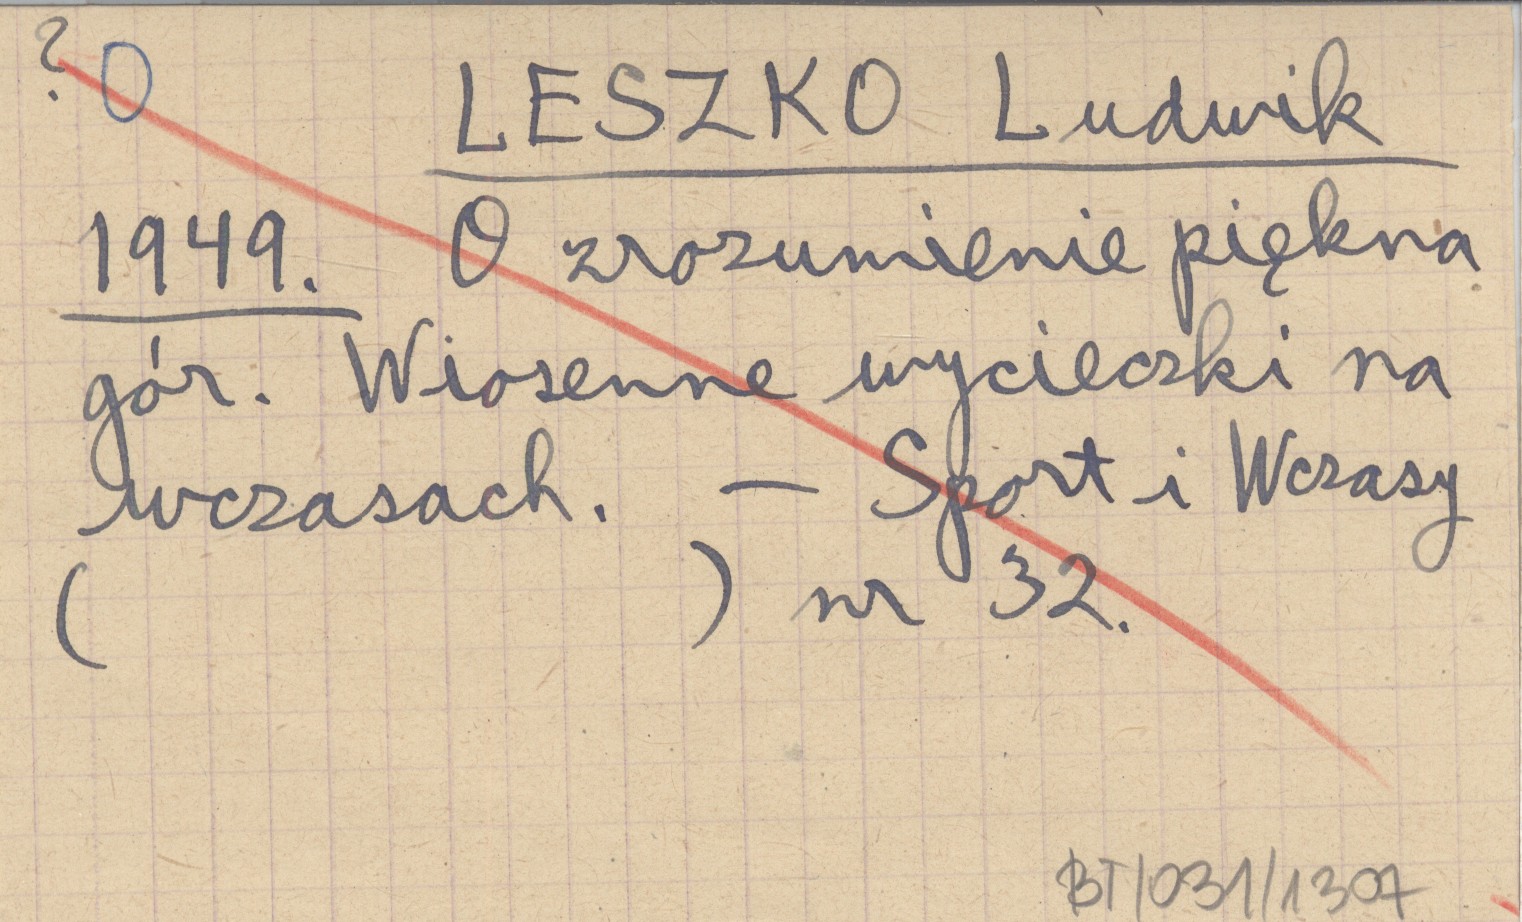 ? O
LESZKO Ludwik
1949. O zrozumienie piękna
gór. Wiosenne wycieczki na
wczasach. – Sport i Wczasy
( ) nr 32.
BT/031/1307